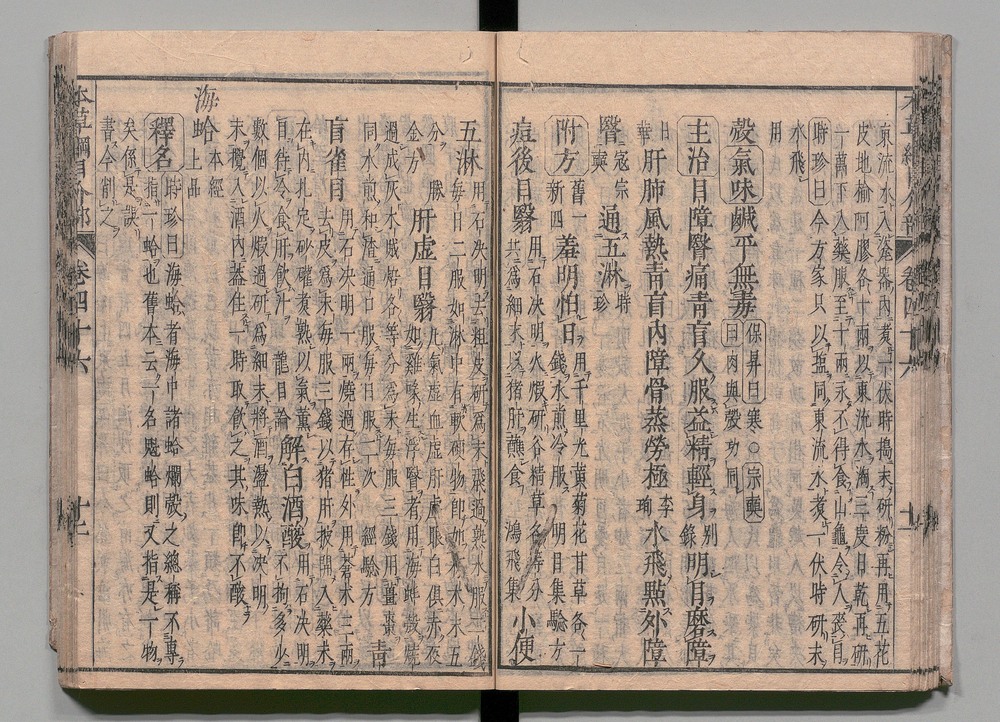 東流水入瓷器內煮一伏時搗末研粉再用五花
皮地榆阿膠各十兩以東流水淘三度日乾再研
一萬下入藥服至十兩永不得食山龜令人喪目
時珍曰今方家只以鹽同東流水煮一伏時研末
水飛用
殼氣味鹹平無毒保昇曰寒○宗奭曰肉與殼功同
主治目障瞖痛青盲久服益精輕身別錄明目磨障
日華肝肺風熱青盲內障骨蒸勞極李珣水飛點外障
瞖寇宗奭通五淋時珍
附方舊一新四羞明怕日用千里光黃菊花甘草各一錢水煎冷服明目集驗方
痘後目翳用石決明火煅研谷精草各等分共爲細末以猪肝蘸食鴻飛集小便
五淋用石決明去粗皮研爲末飛過熟水服二錢每日二服如淋中有軟硬物即加朽木末五
分勝金方肝虛目翳凡氣虛血虛肝虛眼白俱赤夜如雞啄生浮瞖者用海蚌殼燒
過成灰木賊焙各等分爲末每服三錢用薑棗同水煎和渣通口服每日服二次經驗方青
盲雀目用石決明一兩燒過存性外用蒼朮三兩去皮爲末每服三錢以猪肝披開入藥末
在內扎定砂罐煮熟以氣薰目待冷食肝飲汁龍目論解白酒酸用石決明不拘多少
數個以火煅過研爲細末將酒盪熱以決明末攪入酒內蓋住一時取飲之其味即不酸
海蛤本經上品
釋名時珍曰海蛤者海中諸蛤爛殼之總稱不專指一蛤也舊本云一名魁蛤則又指是一物
矣係是誤書今割之
本草綱目介部 卷四十六 十二